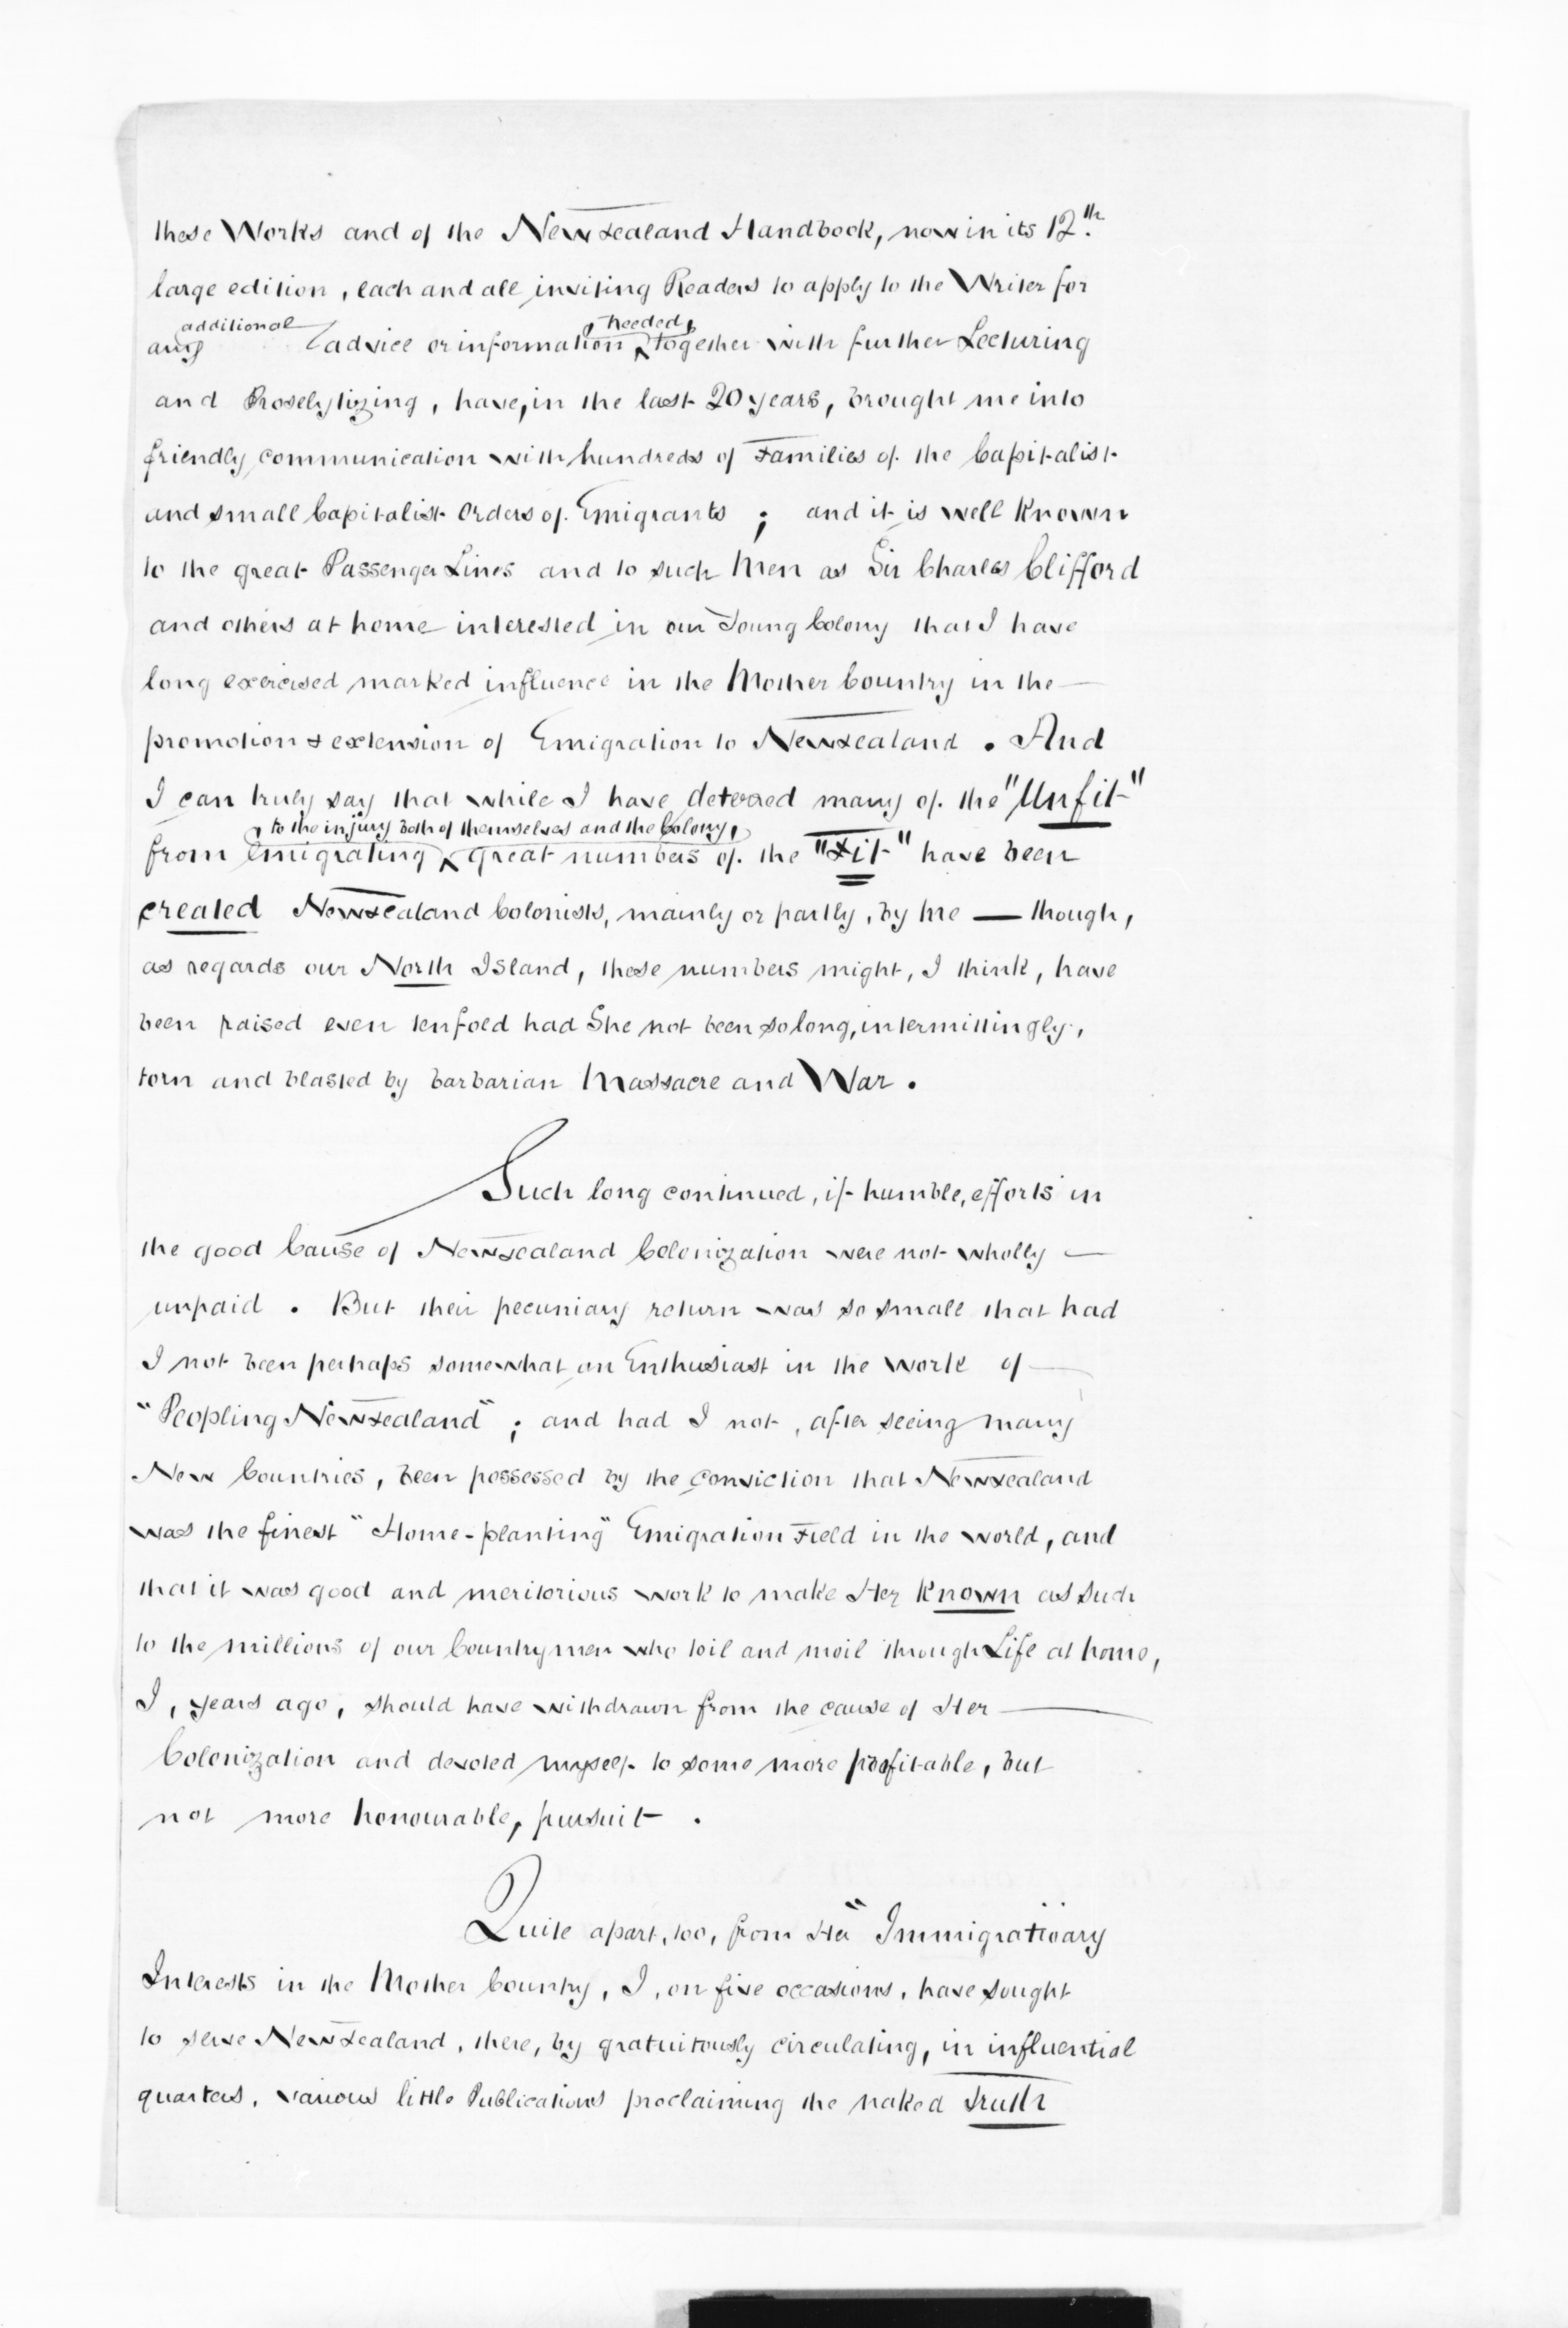 these Works and of the New Zealand Handbook, now in its 12th
large edition, each and all inviting Readers to apply to the Writer for
additional needed,
any advice or information together with further Lecturing
and Proselytizing, have, in the last 20 years, brought me into
friendly communication with hundreds of Families of the Capitalist
and small Capitalist Orders of Emigrants ; and it is well Known
to the great Passenger Lines and to such Men as Sir Charles Clifford
and others at home interested in our Young Colony that I have
long exercised marked influence in the Mother Country in the —
promotion & extension of Emigration to New Zealand . And
I can truly say that while I have deterred many of the "Unfit"
, to the injury both of themselves and the Colony,
from emigrating great numbers of the "Fit" have been
created New Zealand Colonists, mainly or partly, by me — though,
as regards our North Island, these numbers might, I think, have
been raised even tenfold had She not been so long, intermittingly,
torn and blasted by barbarian Massacre and War .
Such long continued, if humble, efforts in
the good Cause of New Zealand Colonization were not wholly —
unpaid . But their pecuniary return was so small that had
I not been perhaps somewhat an Enthusiast in the work of —
"Peopling New Zealand" ; and had I not, after seeing many
New Countries, been possessed by the conviction that New Zealand
was the finest "Home-planting" Emigration Field in the world, and
that it was good and meritorious work to make Her Known as such
to the millions of our Countrymen who toil and moil through Life at home,
I, years ago, should have withdrawn from the cause of Her —
Colonization and devoted myself to some more profitable, but
not more honourable, pursuit .
Quite apart, too, from Her "Immigrationary
Interests in the Mother Country, I, on five occasions, have sought
to serve New Zealand, there, by gratuitously circulating, in influential
quarters, various little Publications proclaiming the naked Truth